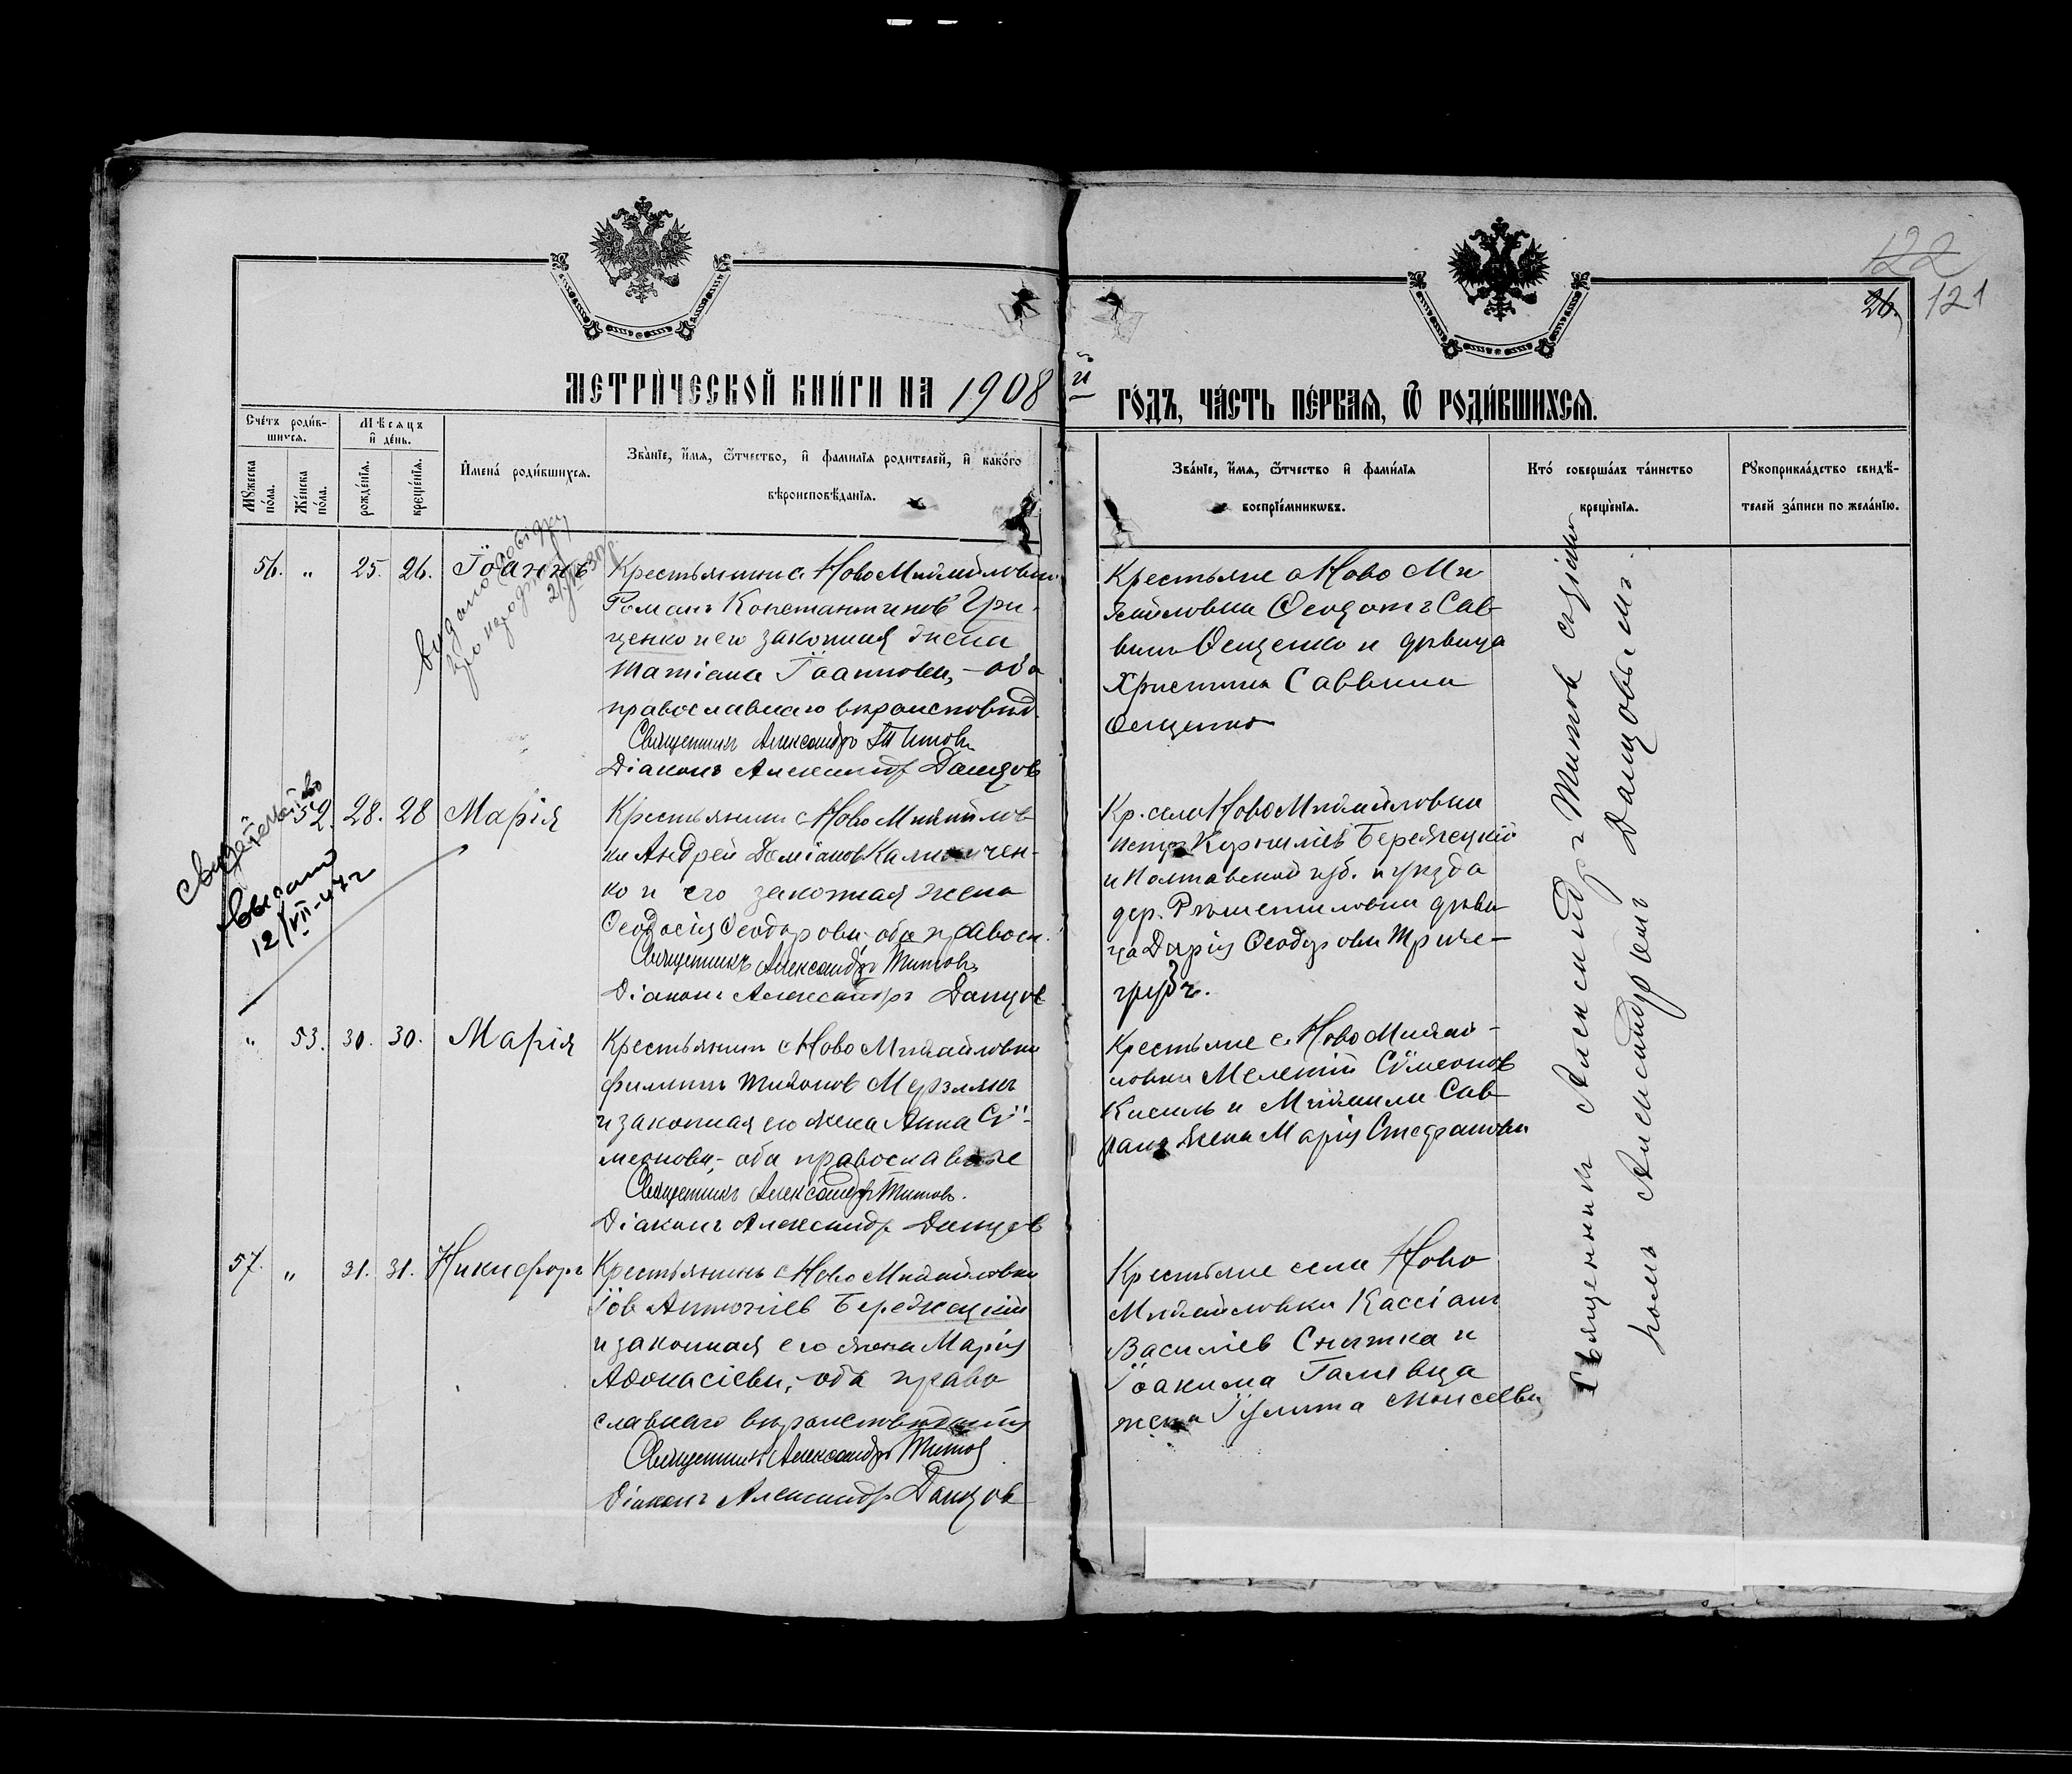 122
26. 121
МЕТРИЧЕСКОЙ КНИГИ НА 1908 й ГОДЪ, ЧАСТЬ ПЕРВАЯ, Ѿ РОДИВШИХСЯ.
Счетъ родив-
шихся.
Мѣсяцъ
и день.
Мꙋжеска
пола.
Женска
пола.
рожденїя.
крещенїя.
Имена родившихся.
Званїе, имя, ѿтчество, и фамилїя родителей, и какого
вѣроисповѣданїя.
Званїе, имя, ѿтчество и фамилїя
воспрїемникѡвъ.
Кто совершалъ таинство
крещенїя.
Рꙋкоприкладство свидѣ-
телей записи по желанїю.
56. " 25. 26. Іоаннъ
Крестьянинъ с. Ново Михайловки
Романъ Константиновъ Гри-
ценко и его законная жена
Татіана Іоаннова, - оба
православнаго вѣроисповѣд.
Священникъ Александръ Титовъ
Діаконъ Александр Данцов
Крестьяне с Ново Ми
хайловки Ѳеодотъ Сав-
винъ Ѳещенко и дѣвица
Христина Саввина
Ѳещенко
свидетельство
выслано
12/VII-47 г
" 52. 28. 28 Марія
Крестьянинъ с Ново Михайлов
ки Андрей Даміанов
ко и его законная жена
Ѳеодосія Ѳеодорова, оба правосл.
Священникъ Александръ Титовъ
Діаконъ Александръ Данцов
Кр. села Ново Михайловки
Бережецкій
и Полтавской губ. и уѣзда
дер. Рѣшетиловки дѣви-
ца Дарія Ѳеодорова
" 53. 30. 30. Марія
Крестьянинъ с Ново Михайловки
Филиппъ Тихонов Мерзлик
и законная его жена Анна Сѵ-
меонова, - оба православные
Священникъ Александръ Титовъ.
Діаконъ Александр Данцов
Крестьяне с. Ново Михай-
ловки Мелетій Сѵмеонов
Кисиль и Михаила Сав
жена Марія Стефанова
57. " 31. 31. Никифоръ
Крестьянинъ с Ново Михайловки
Іов Антоніев Бережецкій
и законная его жена Марія
Аѳонасіева, - оба право
славнаго вѣроисповѣданія
Священникъ Александръ Титов
Діаконъ Александр Данцов
Крестьяне села Ново
Михайловки Кассіанъ
Василіев Снитка и
Іоакима
жена Іулита Моисеева
Священникъ Александръ Титов съ діако
номъ Александромъ Данцовымъ.